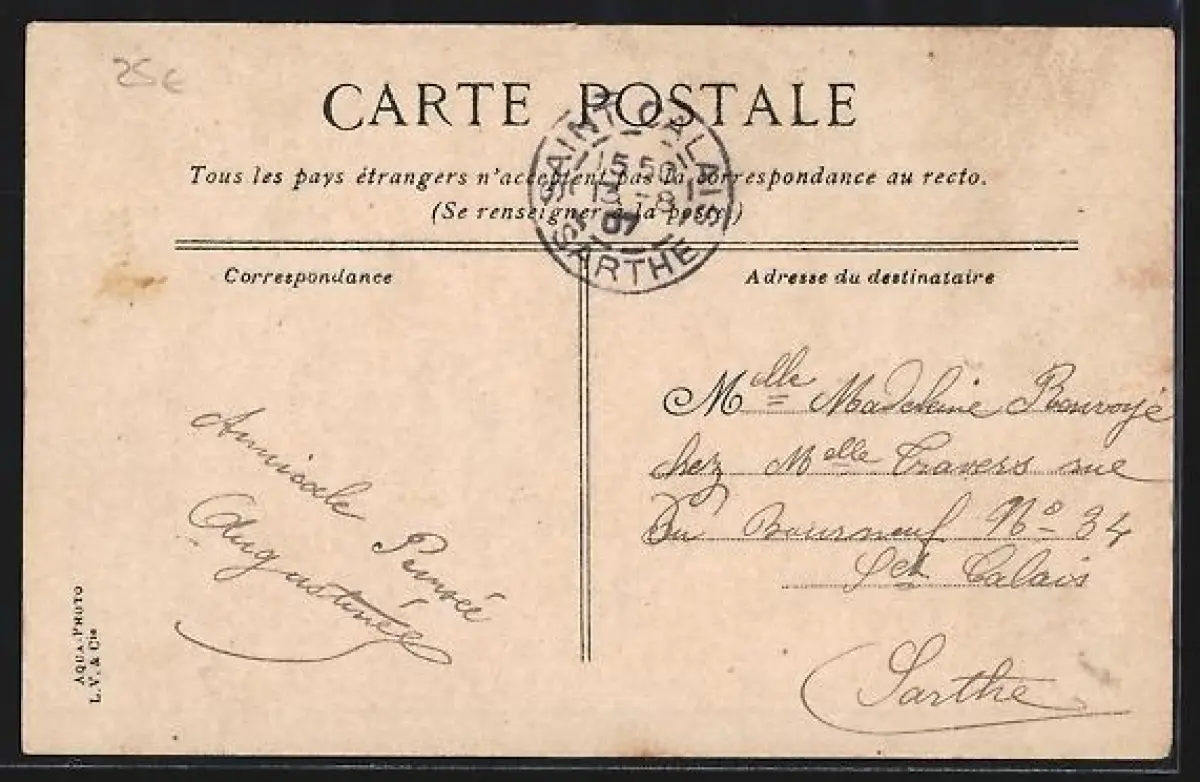 25€
CARTE POSTALE
Tous les pays étrangers n'acceptent pas la correspondance au recto.
(Se renseigner à la poste)
SAINT CALAIS
15 50
13 - 8
07
SARTHE
Correspondance
Adresse du destinataire
Amicale Pensée
Augustine
Melle Madeleine Renvoyé
chez Melle Travers rue
Du Bourneuf No 34
St Calais
Sarthe
AQUA-PHOTO
L. V. & Cie